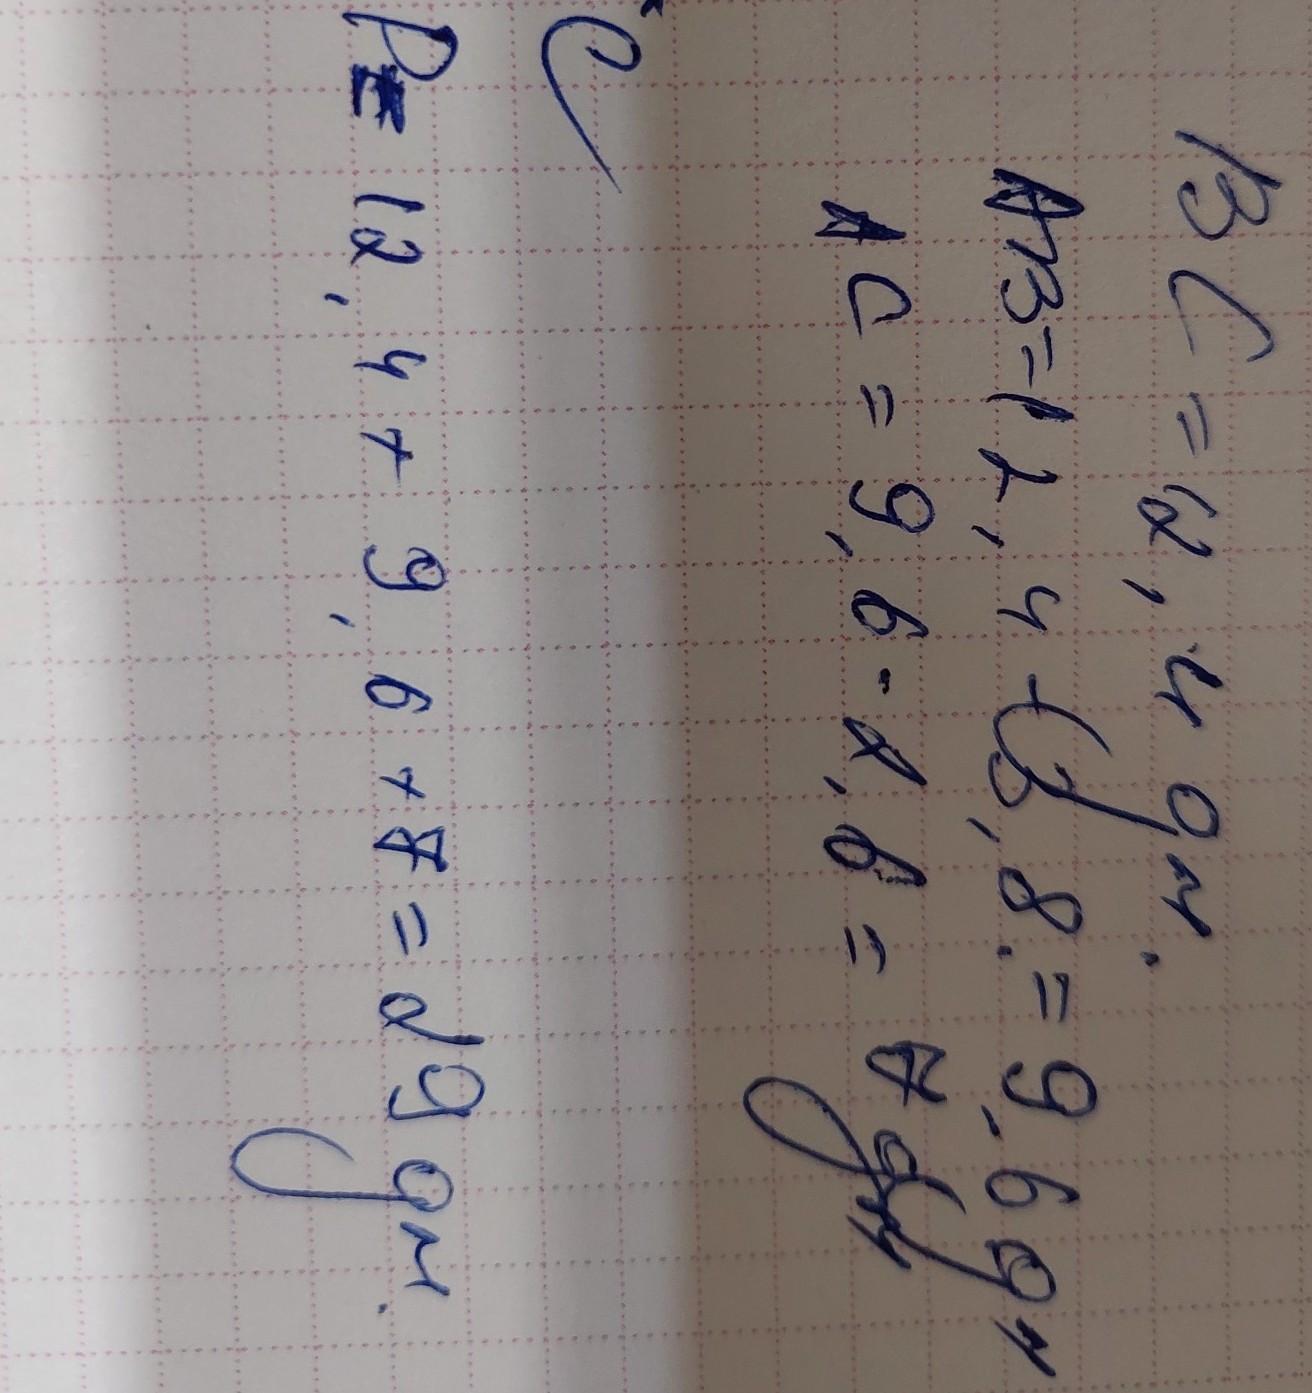 BC = 12,4 дм.
AB = 12,4 - 3,8 = 9,6 дм
AC = 9,6 - 2,6 = 7 дм
C
P = 12,4 + 9,6 + 7 = 29 дм.